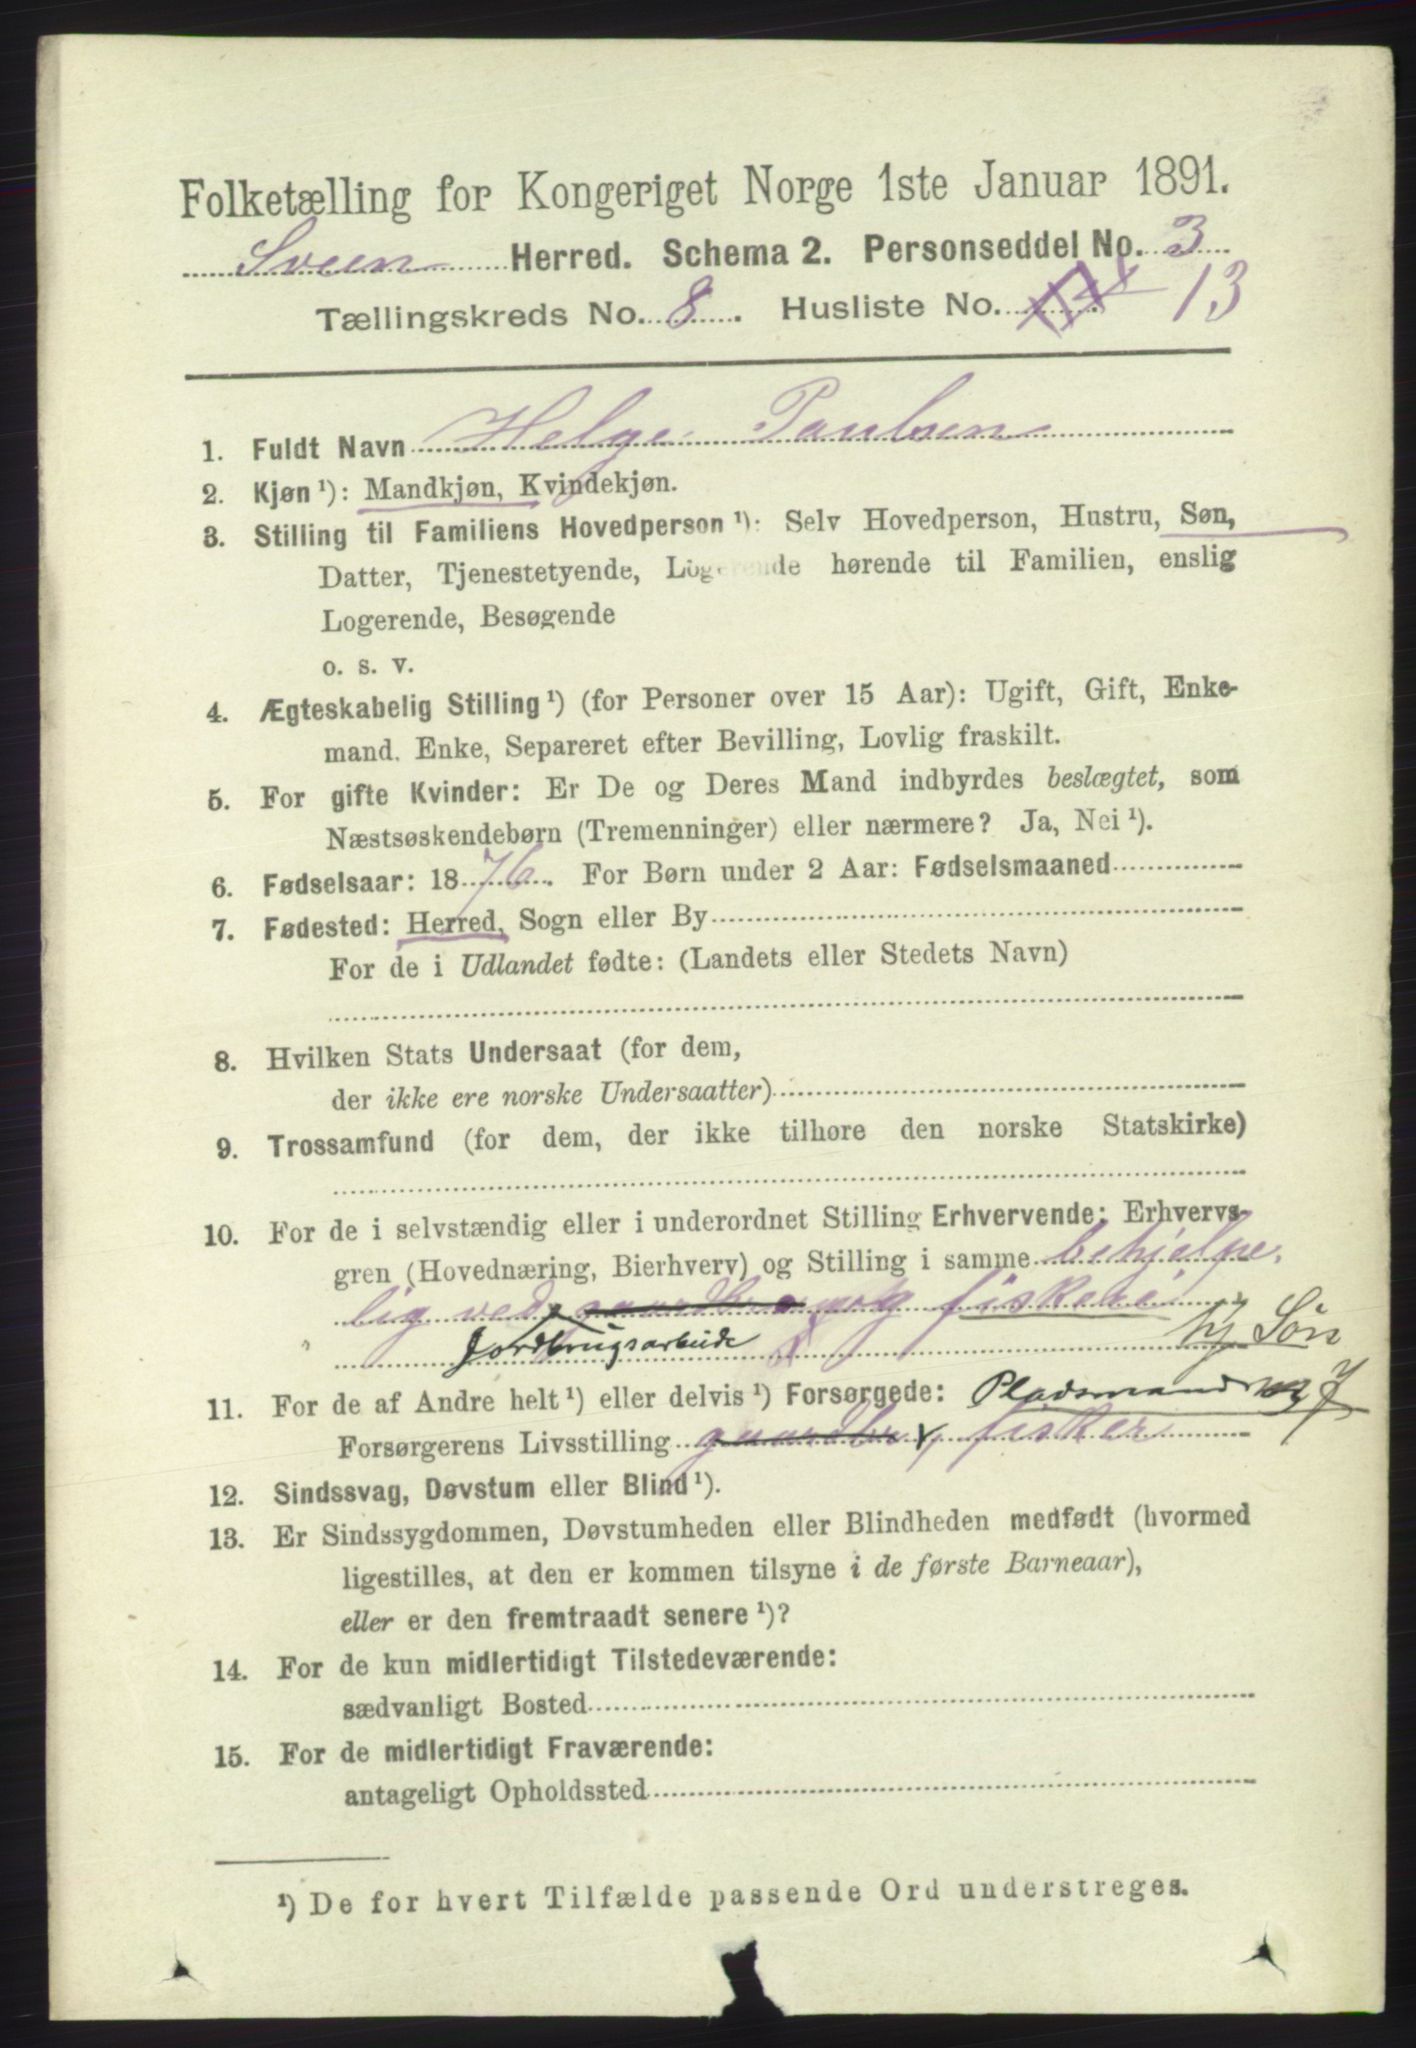 Folketælling for Kongeriget Norge 1ste Januar 1891.
Sveen Herred. Schema 2. Personseddel No. 3
Tællingskreds No. 8. Husliste No. 13
1. Fuldt Navn Helge Paulsen
2. Kjøn ¹): Mandkjøn, Kvindekjøn.
3. Stilling til Familiens Hovedperson ¹): Selv Hovedperson, Hustru, Søn,
Datter, Tjenestetyende, Logerende hørende til Familien, enslig
Logerende, Besøgende
o. s. v.
4. Ægteskabelig Stilling ¹) (for Personer over 15 Aar): Ugift, Gift, Enke-
mand. Enke, Separeret efter Bevilling, Lovlig fraskilt.
5. For gifte Kvinder: Er De og Deres Mand indbyrdes beslægtet, som
Næstsøskendebørn (Tremenninger) eller nærmere? Ja, Nei ¹).
6. Fødselsaar: 1876. For Børn under 2 Aar: Fødselsmaaned
7. Fødested: Herred, Sogn eller By
For de i Udlandet fødte: (Landets eller Stedets Navn)
8. Hvilken Stats Undersaat (for dem,
der ikke ere norske Undersaatter)
9. Trossamfund (for dem, der ikke tilhøre den norske Statskirke)
10. For de i selvstændig eller i underordnet Stilling Erhvervende: Erhvervs-
gren (Hovednæring, Bierhverv) og Stilling i samme behjelpe.
lig ved og fiskeri
Jordbrugsarbeide hj Søn
11. For de af Andre helt ¹) eller delvis ¹) Forsørgede: Pladsmand m J
Forsørgerens Livsstilling gaardbr, fisker
12. Sindssvag, Døvstum eller Blind ¹).
13. Er Sindssygdommen, Døvstumheden eller Blindheden medfødt (hvormed
ligestilles, at den er kommen tilsyne i de første Barneaar),
eller er den fremtraadt senere ¹)?
14. For de kun midlertidigt Tilstedeværende:
sædvanligt Bosted
15. For de midlertidigt Fraværende:
antageligt Opholdssted
¹) De for hvert Tilfælde passende Ord understreges.